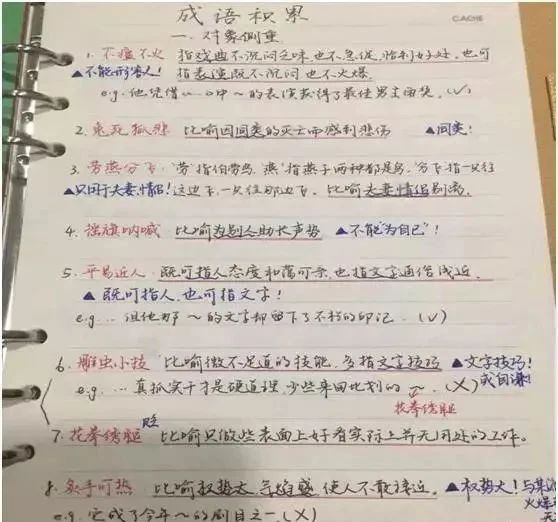 成语积累
CACHE
一、对象侧重
1. 不瘟不火 指戏曲不沉闷乏味也不急促,恰到好处,也可
▲不能形容人! 指表演既不沉闷也不火爆.
e.g. 他凭借《…》中～的表演获得了最佳男主角奖.(√)
2. 兔死狐悲 比喻因同类的灭亡而感到悲伤 ▲同类!
3. 劳燕分飞 "劳"指伯劳鸟,"燕"指燕子两种都是鸟,"分飞"指一只往
▲只用于夫妻,情侣! 这边飞,一只往那边飞. 比喻夫妻情侣别离.
4. 摇旗呐喊 比喻为别人助长声势 ▲不能"为自己"!
5. 平易近人 既可指人态度和蔼可亲,也指文字通俗浅近.
▲既可指人,也可指文字!
e.g. … 但他那～的文字却留下了不朽的印记.(√)
6. 雕虫小技 比喻微不足道的技能,多指文字技巧 ▲文字技巧!
或自谦!
e.g. … 真抓实干才是硬道理,少些来回比划的～.(×)
花拳绣腿
7. 花拳绣腿 贬 比喻只做些表面上好看实际上并无用处的工作.
8. 炙手可热 比喻权势大,气焰盛,使人不敢接近. ▲权势大!与某
火爆
e.g. 它成了今年～的剧目之一.(×)